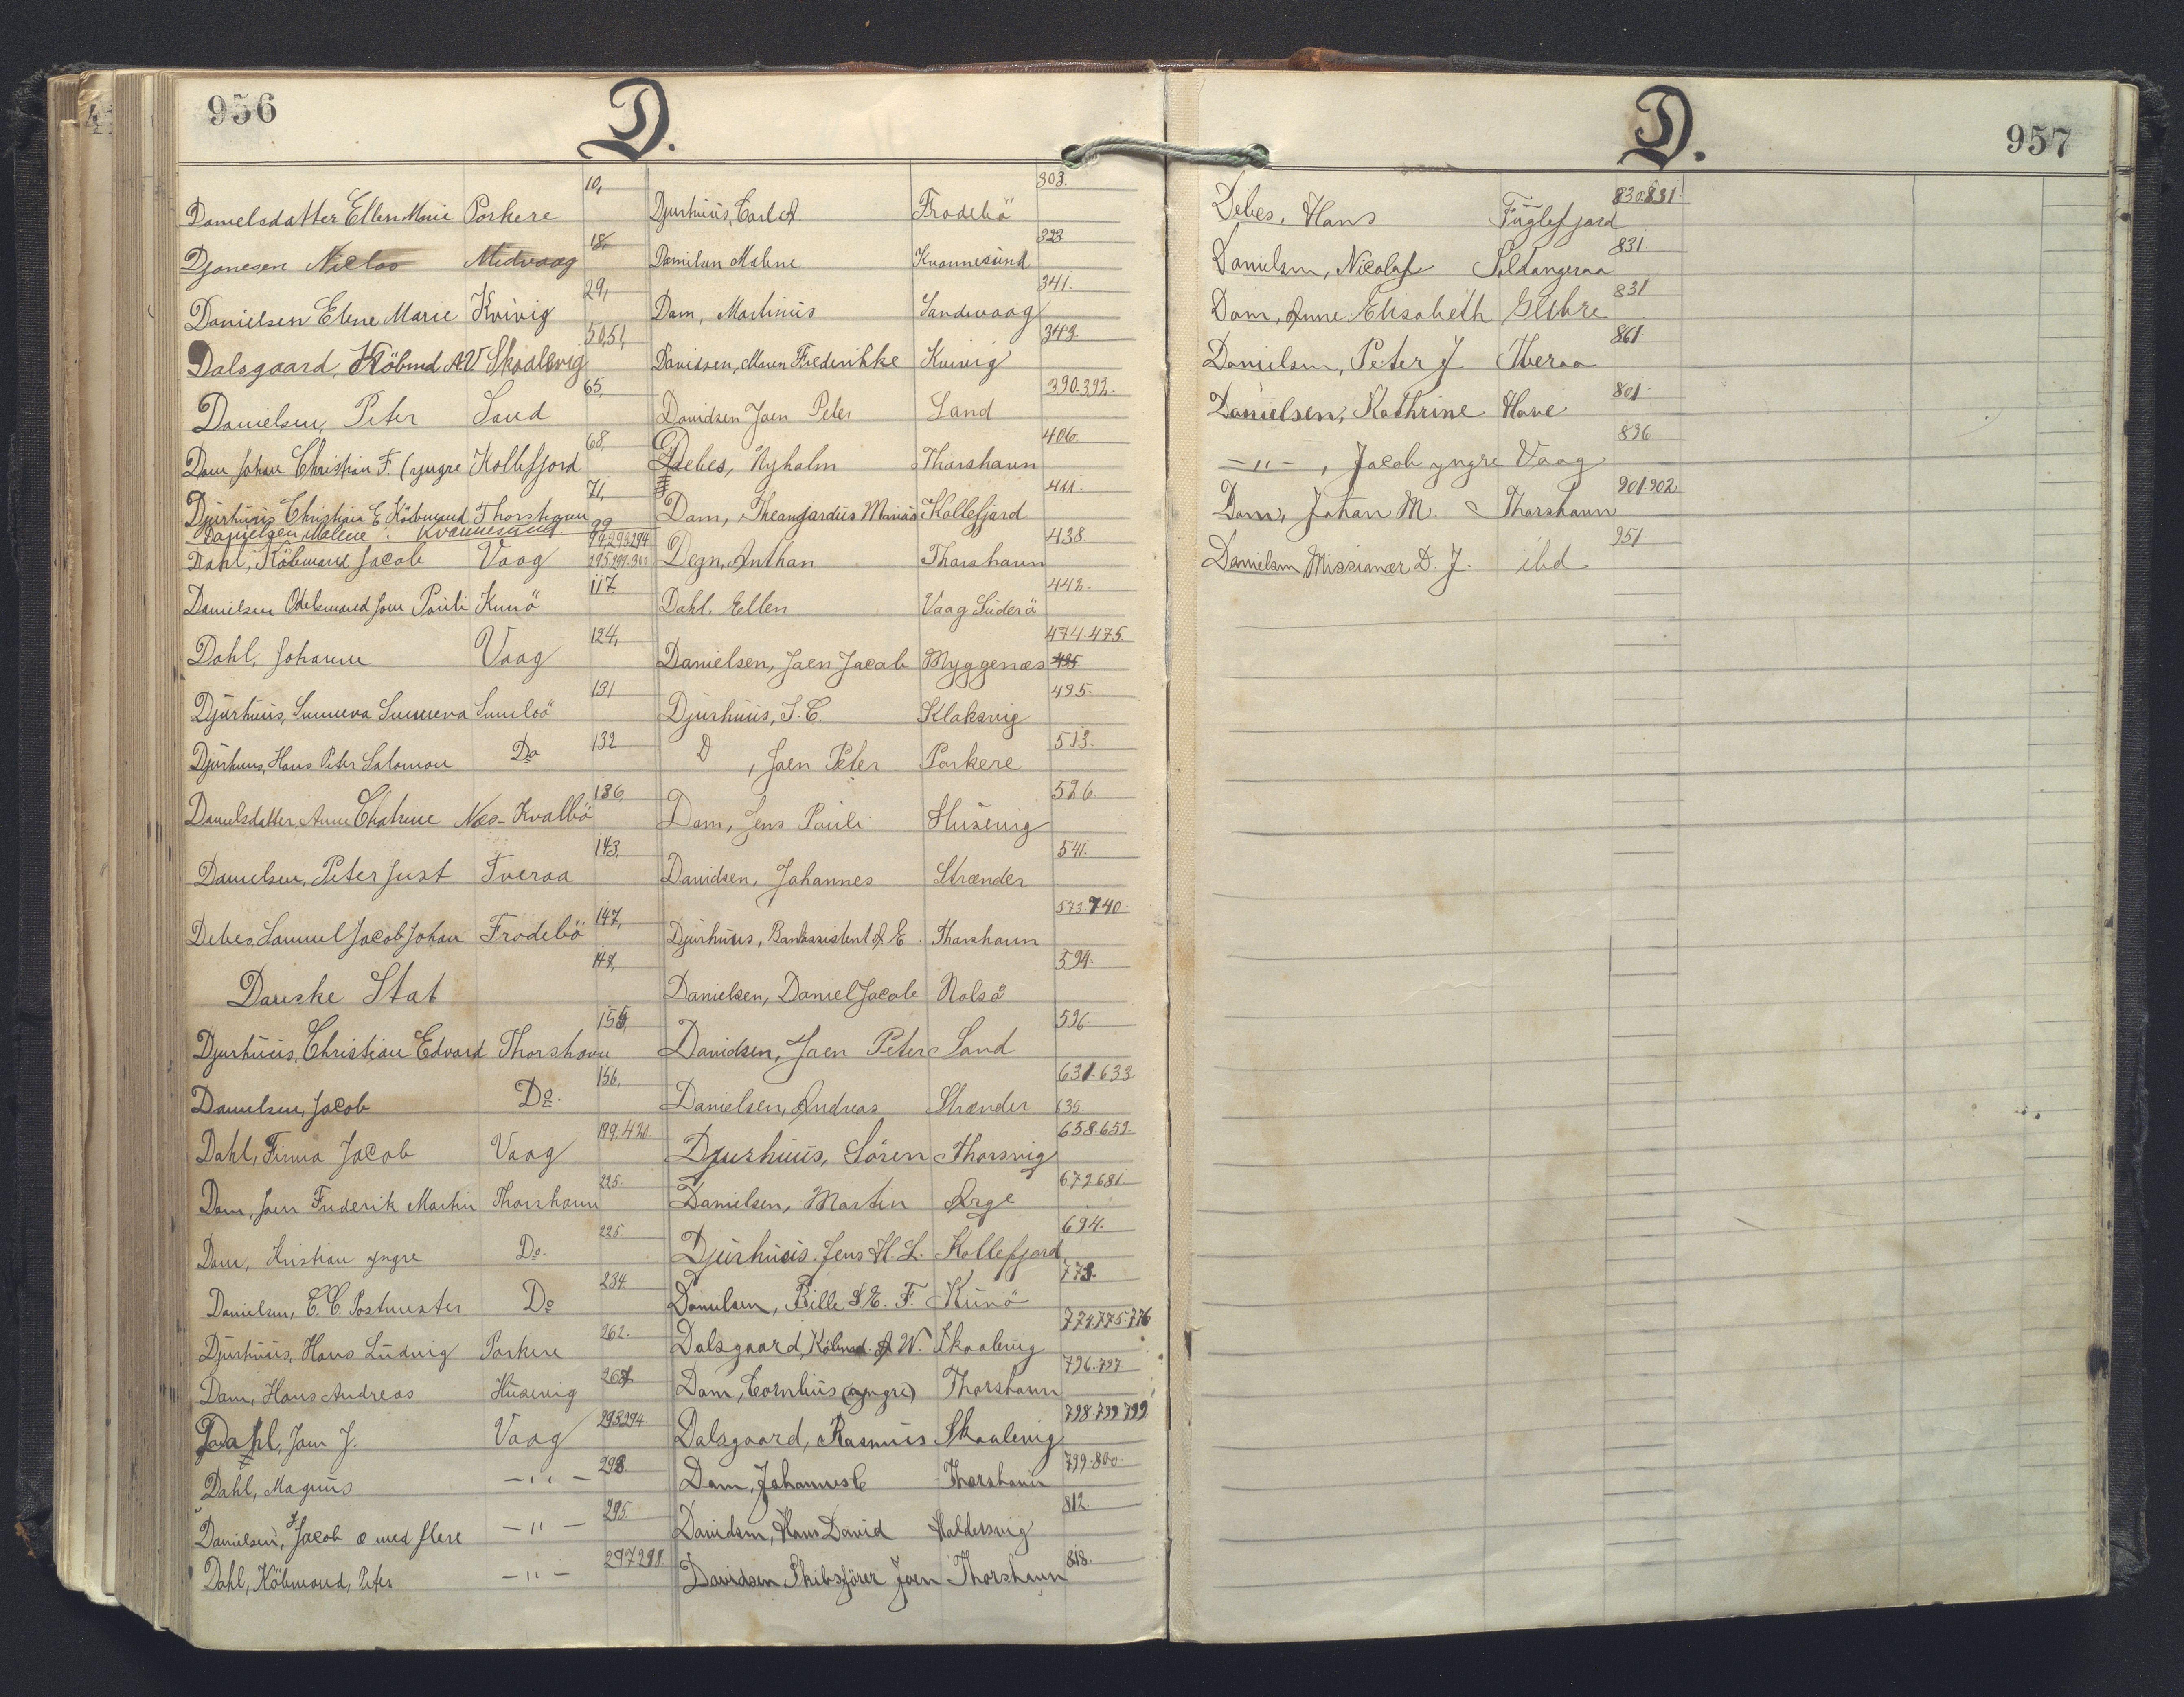 956
D.
Danielsdatter Ellen Marie Porkere 10,
Djonesen Niclas Midvaag 18,
Danielsen Elene Marie Kvivig 29,
Dalsgaard, Köbmd A.V. Skaalevig 50,51,
Danielsen, Peter Sand 65,
Dam Johan Christian F. (yngre Kollefjord 68,
Djurhuus Christian E. Köbmand Thorshavn 71,
Danielsen, Malene Kvannesund 99
Dahl, Köbmand Jacob Vaag 94,293,294 295.297.300
Danielsen Odelsmand Joen Pauli Kunö 117
Dahl, Johanne Vaag 124,
Djurhuus, Sunneva Sunneva Sumbö 131
Djurhuus, Hans Peter Salomon Do 132
Danielsdatter, Anne Chatrine Næs-Kvalbö 136
Danielsen, Peter Just Tveraa 143,
Debes, Samuel Jacob Johan Frodebö 147,
Danske Stat 148,
Djurhuus, Christian Edvard Thorshavn 155,
Danielsen, Jacob Do. 156,
Dahl, Firma Jacob Vaag 199.420.
Dam, Joen Frederik Martin Thorshavn 225.
Dam, Kristian yngre Do. 225.
Danielsen, C.C. Postmester Do 234.
Djurhuus, Hans Ludvig Porkere 262.
Dam, Hans Andreas Husevig 267
Dahl, Joen J. Vaag 293294
Dahl, Magnus -"- 298.
Danielsen, Jacob J. med flere -"- 295.
Dahl, Köbmand, Peter -"- 297298.
Djurhuus, Carl A. Frodebö 303.
Danielsen Malene Kvannesund 323
Dam, Martinus Sandevaag 341.
Davidsen, Maren Frederikke Kvivig 343.
Davidsen Joen Peter Sand 390.392.
Debes, Nyholm Thorshavn 406.
Dam, Theangardius Marius Kollefjord 411.
Degn, Anthon Thorshavn 438
Dahl, Ellen Vaag Suderö 442.
Danielsen, Joen Jacob Myggenæs 474.475. 495
Djurhuus, J.C. Klaksvig 495.
D , Joen Peter Porkere 513.
Dam, Jens Pauli Husevig 526.
Davidsen, Johannes Strænder 541.
Djurhuus, Bankassistent J. E. Thorshavn 573.740.
Danielsen, Daniel Jacob Nolsö 594.
Davidsen, Joen Peter Sand 596.
Danielsen, Andreas Strænder 631.633 635.
Djurhuus, Sören Thorsvig 658.659.
Danielsen, Martin Arge 679681
Djurhuus. Jens H.L. Kollefjord 694.
Danielsen, Bille S.E.F. Kunö 773.
Dalsgaard, Köbmd. A W. Skaalevig 774.775.776
Dam, Cornlius (yngre) Thorshavn 796.797
Dalsgaard, Rasmus Skaalevig 798.799 799.
Dam, Johannes C Thorshavn 799.800.
Davidsen, Hans David Haldersvig 812.
Davidsen Skibsförer Joen Thorshavn 818.
D.
957
Debes, Hans Fuglefjord 830.831.
Danielsen, Nicolaj Seldangeraa 831
Dam, Anne Elisabeth Glibre 831
Danielsen, Peter J Tveraa 861.
Danielsen, Kathrine Hove 801.
-"-, Jacob yngre Vaag 896
Dam, Johan M. Thorshavn 901.902.
Danielsen Missionær D. J. ibd 951